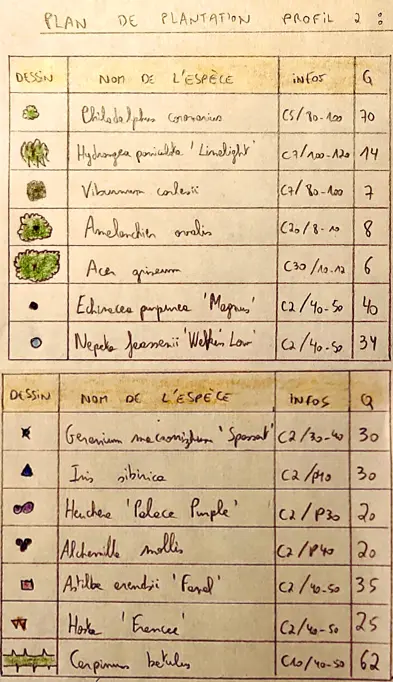 PLAN DE PLANTATION PROFIL 2 :
DESSIN NOM DE L'ESPÈCE INFOS Q
Philadelphus coronarius C5/80-100 70
Hydrangea paniculata 'Limelight' C7/100-120 14
Viburnum carlesii C7/80-100 7
Amelanchier ovalis C20/8-10 8
Acer griseum C30/10-12 6
Echinacea purpurea 'Magnus' C2/40-50 40
Nepeta faassenii 'Walker's Low' C2/40-50 34
DESSIN NOM DE L'ESPÈCE INFOS Q
Geranium macrorrhizum 'Spessart' C2/30-40 30
Iris sibirica C2/P40 30
Heuchera 'Palace Purple' C2/P30 20
Alchemilla mollis C2/P40 20
Astilbe arendsii 'Fanal' C2/40-50 35
Hosta 'Francee' C2/40-50 25
Carpinus betulus C10/40-50 62